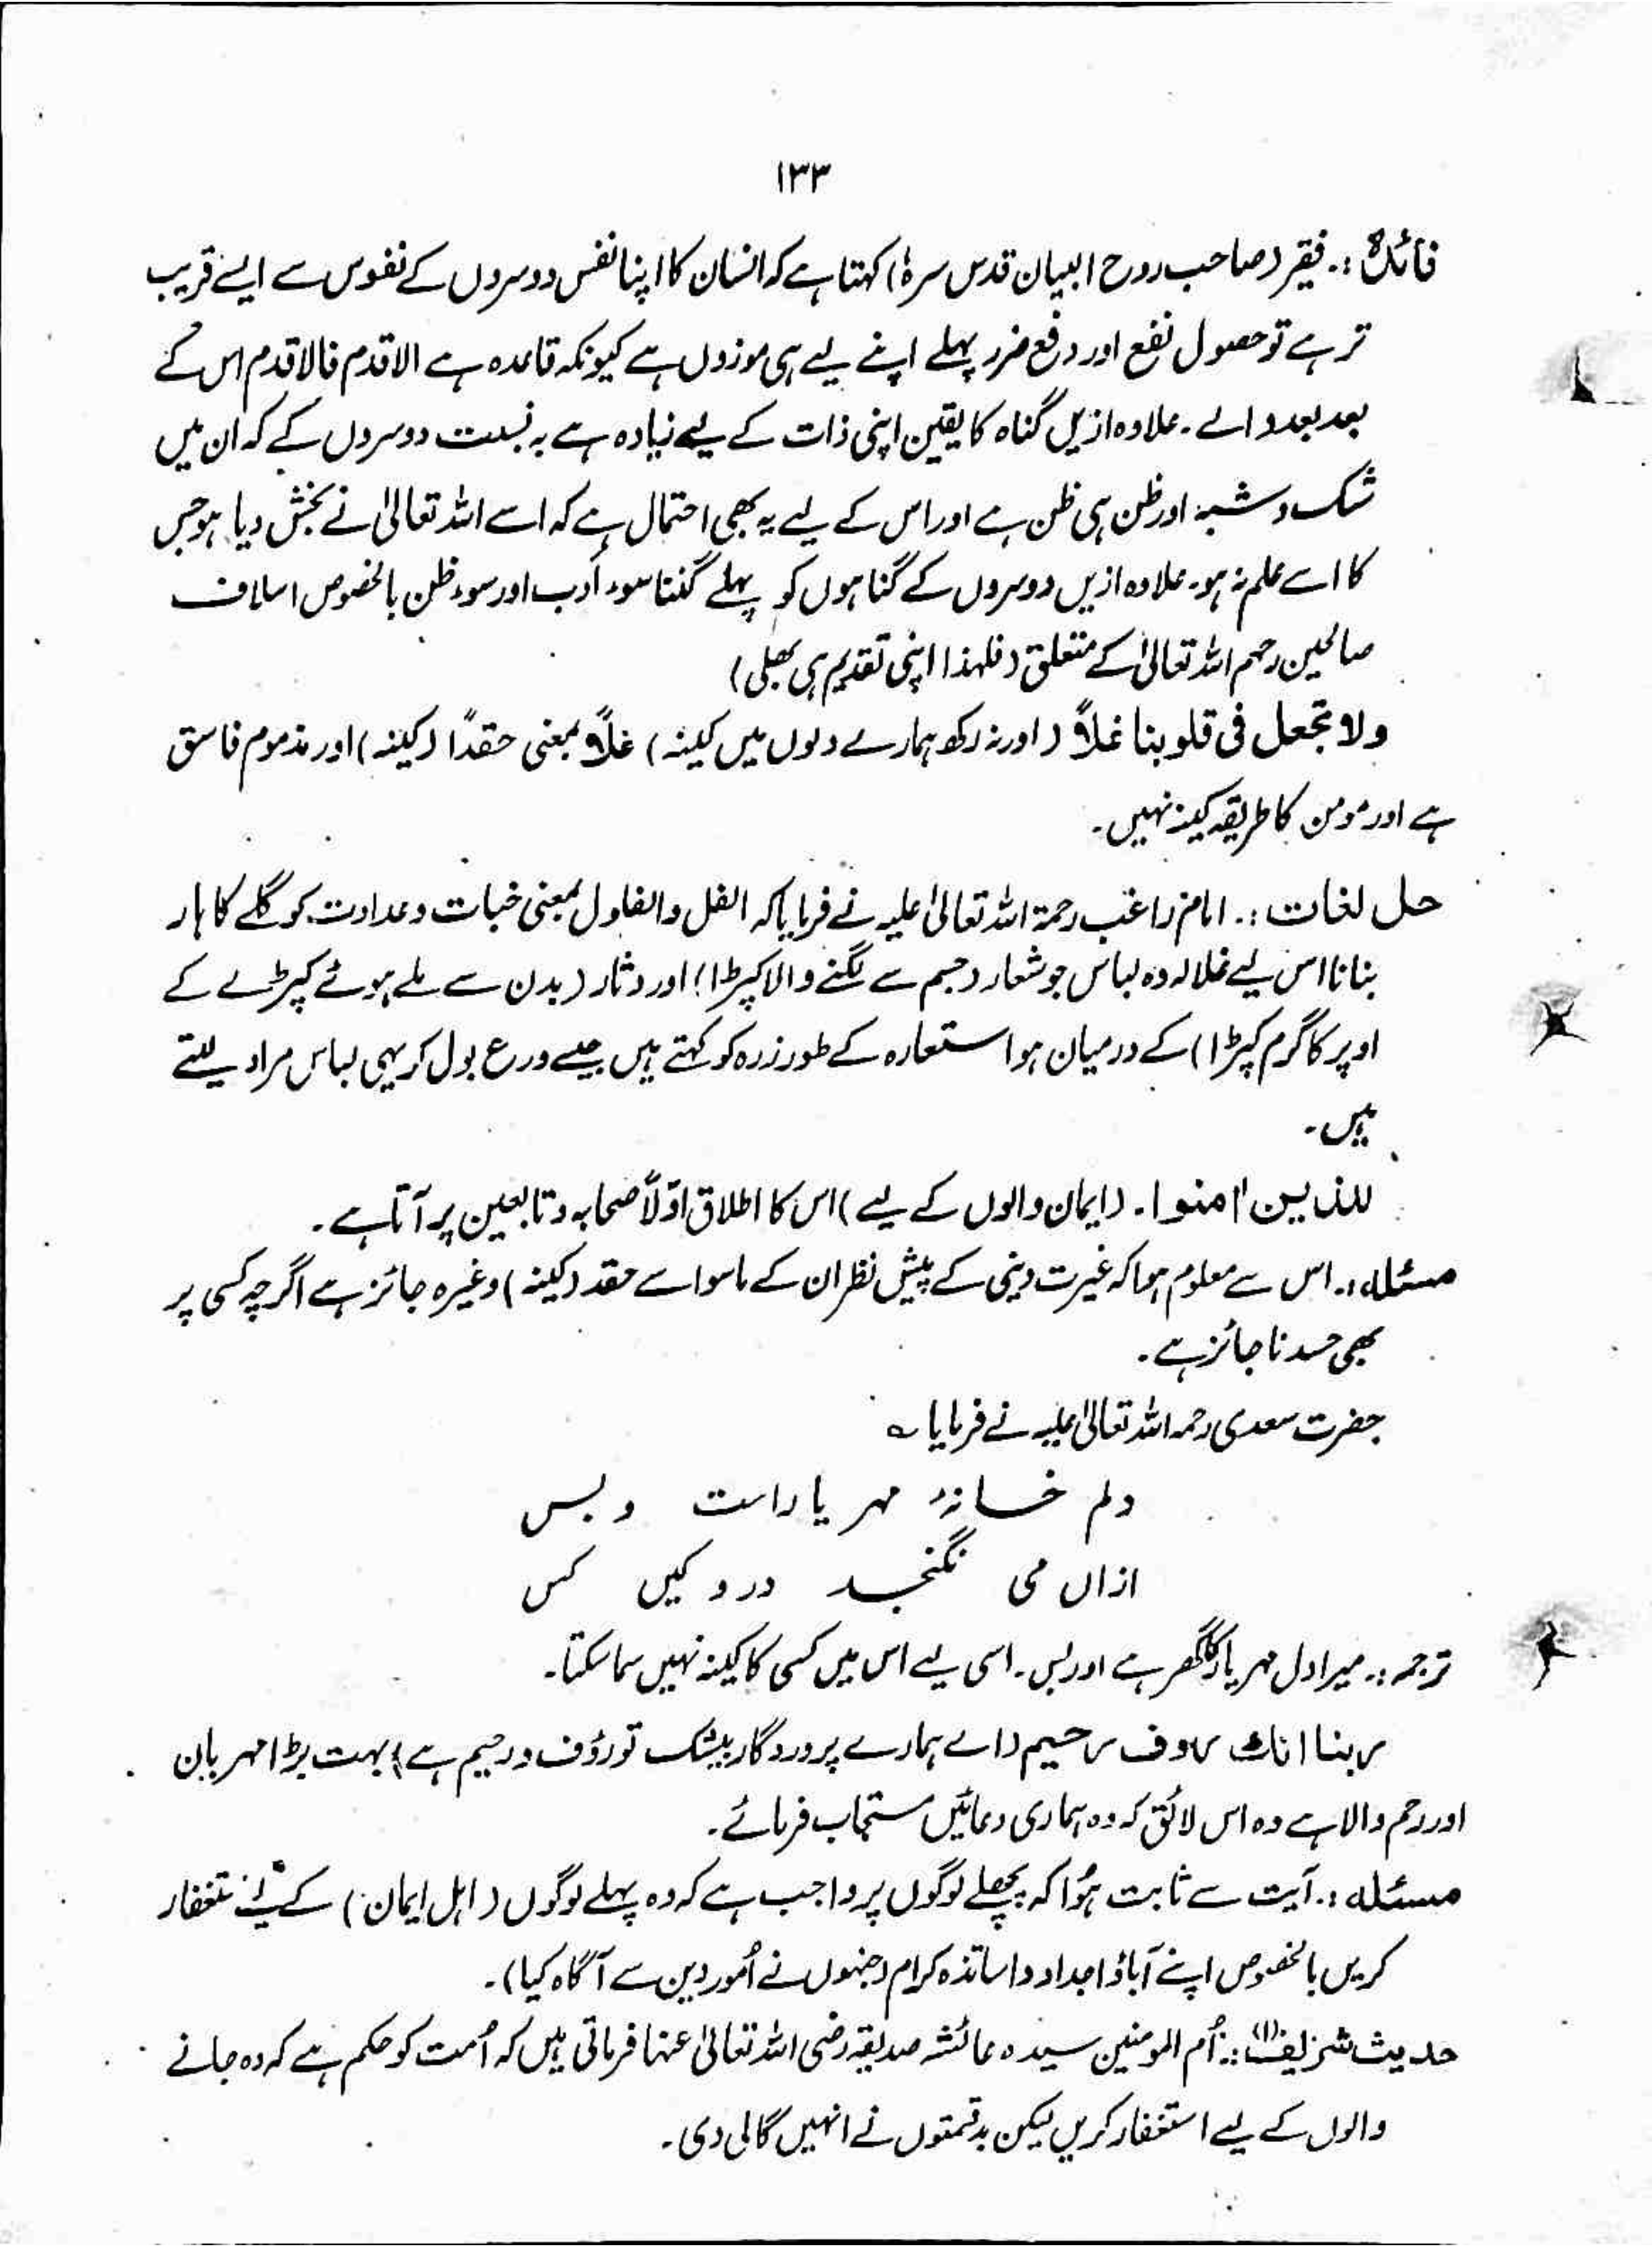 ۱۳۳
فائدہ :۔ فقیر (صاحب روح البیان قدس سرہٗ) کہتا ہے کہ انسان کا اپنا نفس دوسروں کے نفوس سے ایسے قریب
تر ہے تو حصول نفع اور دفع ضرر پہلے اپنے لیے ہی موزوں ہے کیونکہ قاعدہ ہے الاقدم فالاقدم اس کے
بعد بعد والے ۔ علاوہ ازیں گناہ کا یقین اپنی ذات کے لیے زیادہ ہے بہ نسبت دوسروں کے کہ ان میں
شک و شبہ اور ظن ہی ظن ہے اور اس کے لیے یہ بھی احتمال ہے کہ اسے اللہ تعالیٰ نے بخش دیا ہو جس
کا اسے علم نہ ہو۔ علاوہ ازیں دوسروں کے گناہوں کو پہلے گننا سوءِ أدب اور سوءِ ظن بالخصوص اسلاف
صالحین رحمہم اللہ تعالیٰ کے متعلق (فلہذا اپنی تقدیم ہی بھلی)
ولا تجعل فی قلوبنا غلاًّ (اور نہ رکھ ہمارے دلوں میں کینہ) غلاًّ بمعنی حقدًا (کینہ) اور مذموم فاسق
ہے اور مومن کا طریقہ کینہ نہیں ۔
حل لغات :۔ امام راغب رحمۃ اللہ تعالیٰ علیہ نے فرمایا کہ الغل والغلول بمعنی خباث و عداوت کو گلے کا ہار
بنانا اس لیے غلالہ وہ لباس جو شعار (جسم سے لگنے والا کپڑا) اور دثار (بدن سے ملے ہوئے کپڑے کے
اوپر کا گرم کپڑا) کے درمیان ہو استعارہ کے طور زرہ کو کہتے ہیں جیسے درع بول کر یہی لباس مراد لیتے
ہیں ۔
للذین اٰمنوا ۔ (ایمان والوں کے لیے) اس کا اطلاق اوّلاً صحابہ و تابعین پر آتا ہے ۔
مسئلہ :۔ اس سے معلوم ہوا کہ غیرت دینی کے پیش نظر ان کے ماسوا سے حقد (کینہ) وغیرہ جائز ہے اگرچہ کسی پر
بھی حسد ناجائز ہے ۔
حضرت سعدی رحمہ اللہ تعالیٰ علیہ نے فرمایا ؎
دلم خانۂ مہر یاراست وبس
ازاں می نگنجد درو کیں کس
ترجمہ :۔ میرا دل مہر یار کا گھر ہے اور بس ۔ اسی لیے اس میں کسی کا کینہ نہیں سما سکتا ۔
ربنا انك رءوف رحیم (اے ہمارے پروردگار بیشک تو رؤف و رحیم ہے) بہت بڑا مہربان
اور رحم والا ہے وہ اس لائق کہ وہ ہماری دعائیں مستجاب فرمائے ۔
مسئلہ :۔ آیت سے ثابت ہُوا کہ پچھلے لوگوں پر واجب ہے کہ وہ پہلے لوگوں (اہل ایمان) کے لیے استغفار
کریں بالخصوص اپنے آباؤ اجداد و اساتذہ کرام (جنہوں نے اُمور دین سے آگاہ کیا) ۔
حدیث شریف (۱) :۔ اُم المومنین سیدہ عائشہ صدیقہ رضی اللہ تعالیٰ عنہا فرماتی ہیں کہ اُمت کو حکم ہے کہ وہ جانے
والوں کے لیے استغفار کریں لیکن بدقسمتوں نے انہیں گالی دی ۔